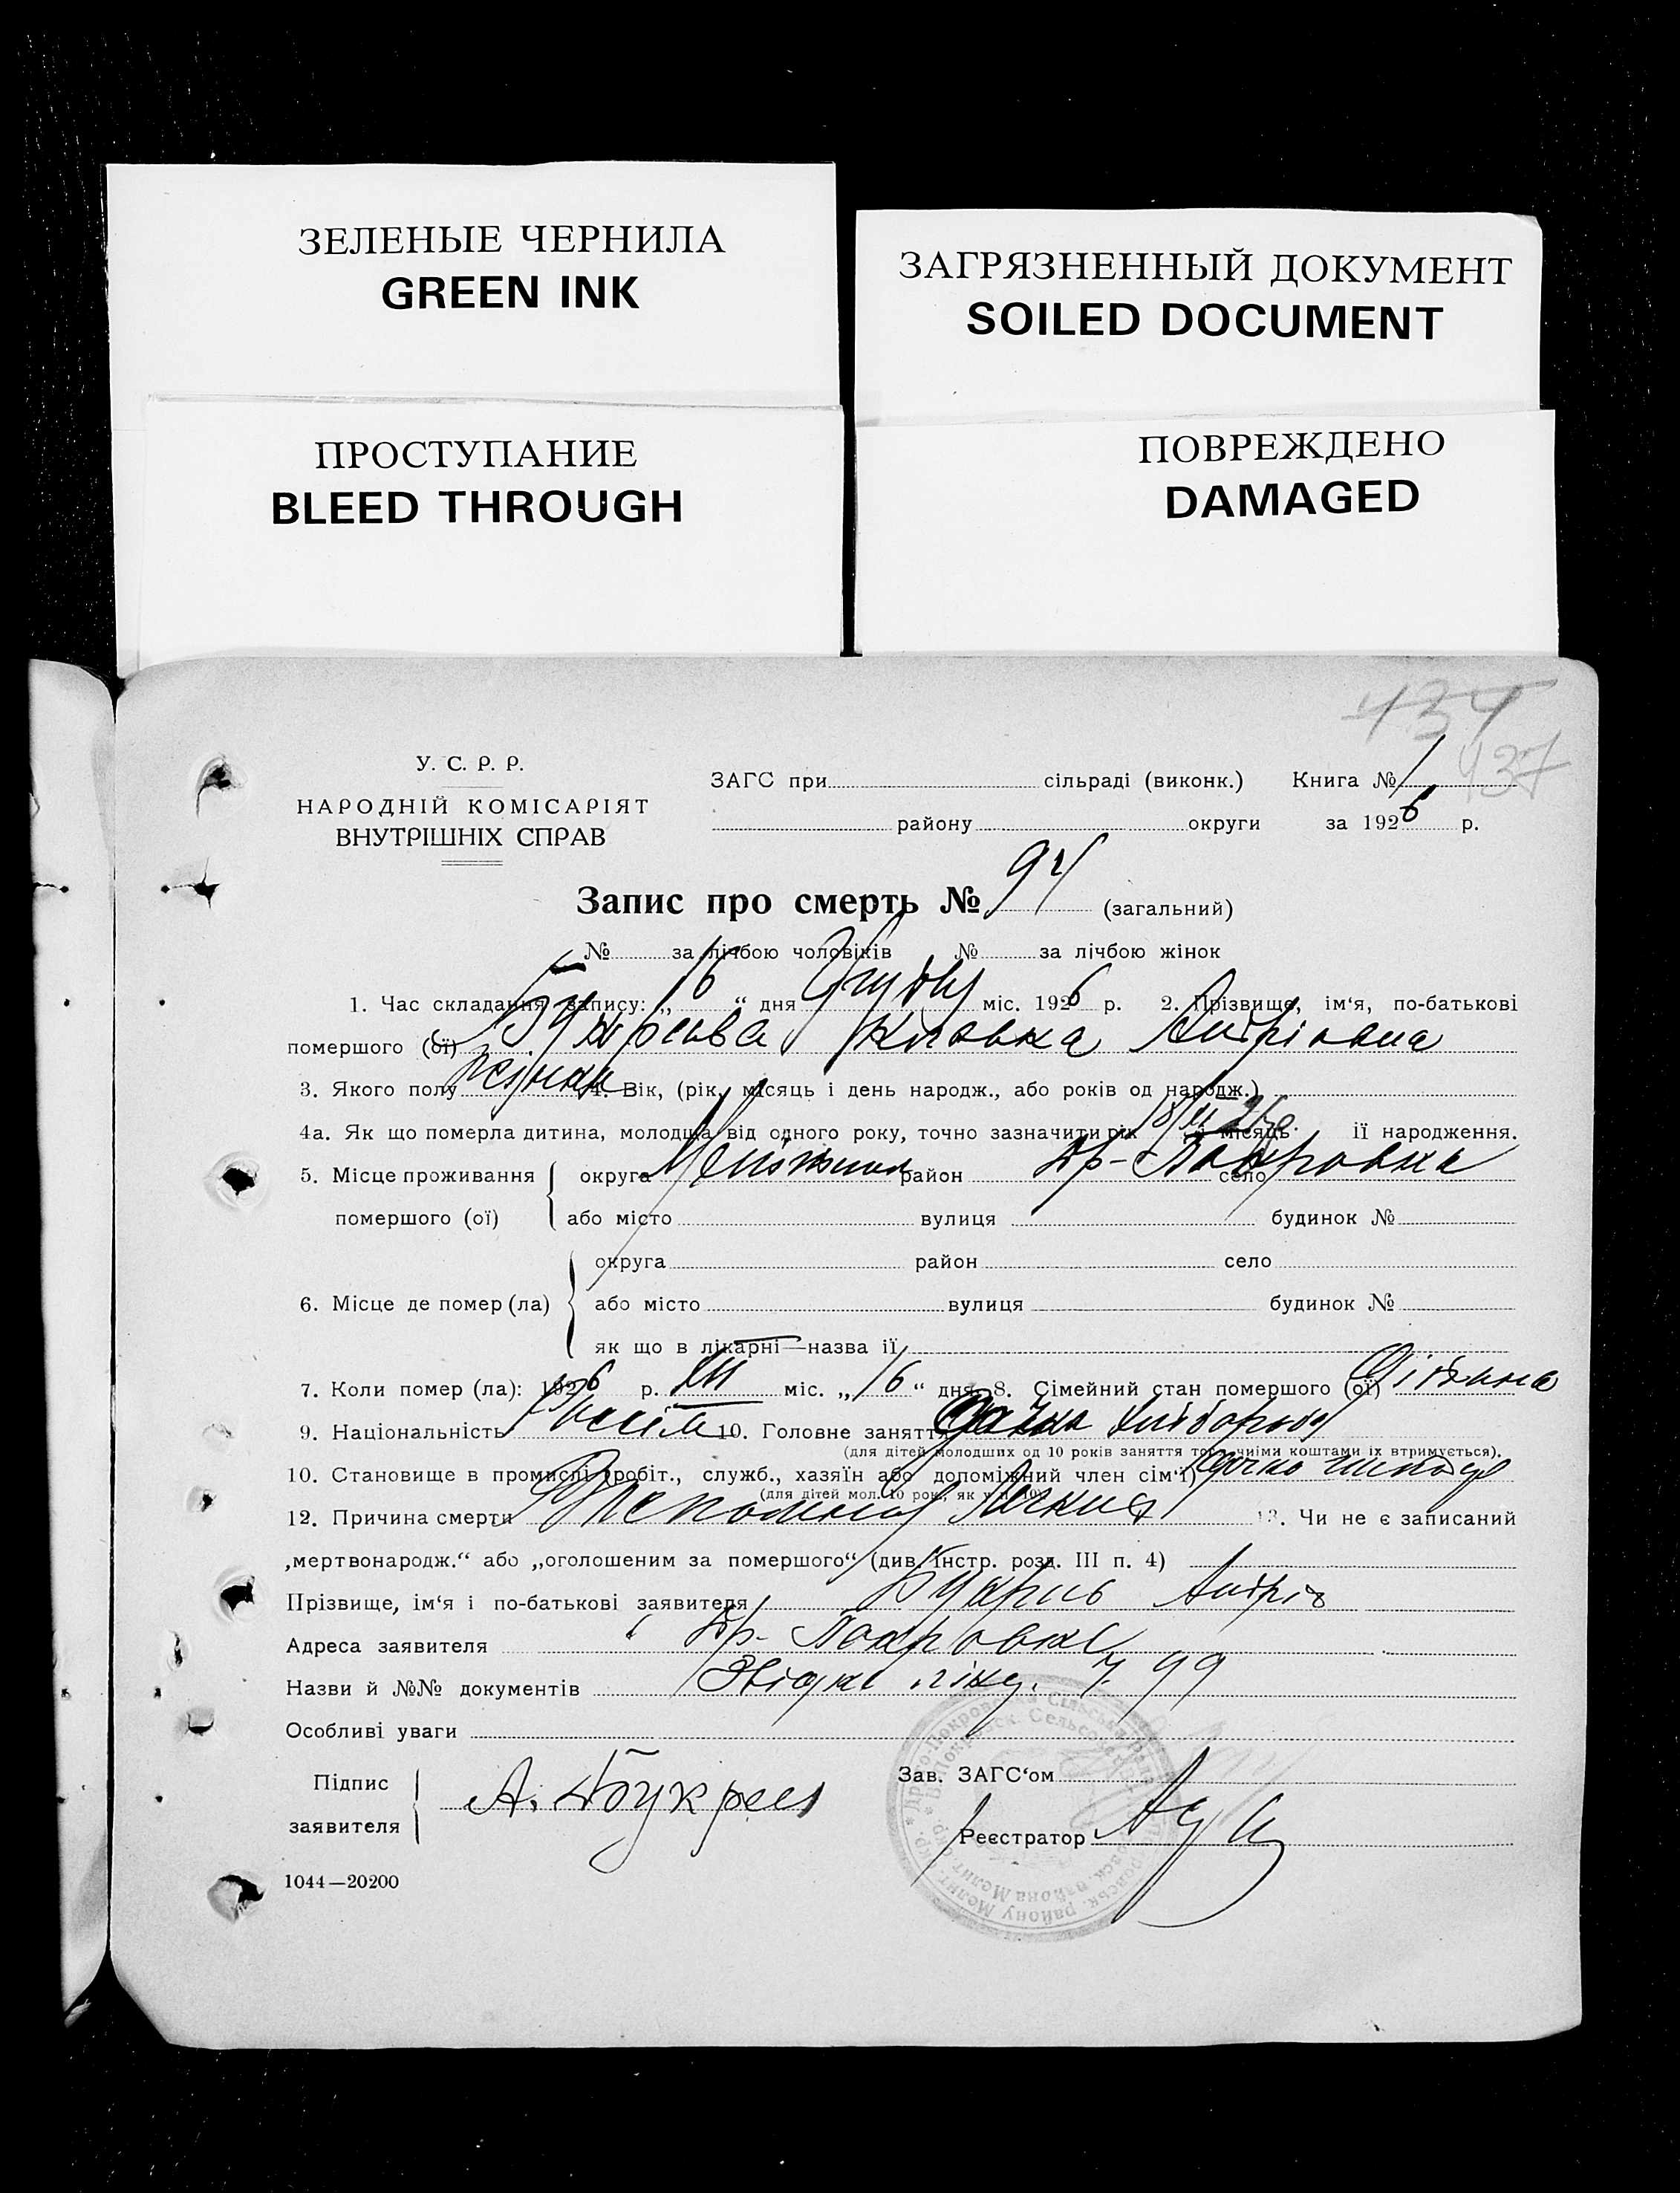 ЗЕЛЕНЫЕ ЧЕРНИЛА
GREEN INK
ЗАГРЯЗНЕННЫЙ ДОКУМЕНТ
SOILED DOCUMENT
ПРОСТУПАНИЕ
BLEED THROUGH
ПОВРЕЖДЕНО
DAMAGED
434
437
У. С. Р. Р.
НАРОДНІЙ КОМІСАРІЯТ
ВНУТРІШНІХ СПРАВ
ЗАГС при сільраді (виконк.) Книга № 1
району округи за 1926 р.
Запис про смерть № 94 (загальний)
№ за лічбою чоловіків № за лічбою жінок
1. Час складання запису: „16“ дня Грудня міс. 1926 р. 2. Прізвище, ім‘я, по-батькові
помершого (ої) Андріовна
3. Якого полу 4. Вік, (рік, місяць і день народж., або років од народж.)
4а. Як що померла дитина, молодща від одного року, точно зазначити рік й місяць її народження.
5. Місце проживання округа район Др-Покровка село
помершого (ої) або місто вулиця будинок №
округа район село
6. Місце де помер (ла) або місто вулиця будинок №
як що в лікарні—назва її
7. Коли помер (ла): 1926 р. XII міс. „16“ дня 8. Сімейний стан помершого (ої) Дитина
9. Національність 10. Головне заняття дочка хлібороба
(для дітей молодших од 10 років заняття того, чиїми коштами їх втримується).
10. Становище в промислі (робіт., служб., хазяїн або допоміжний член сім‘ї)
(для дітей мол. 10 рок., як у п. 10)
12. Причина смерти 13. Чи не є записаний
„мертвонародж.“ або „оголошеним за помершого“ (див. Інстр. розд. III п. 4)
Прізвище, ім‘я і по-батькові заявителя Андрій
Адреса заявителя Др-Покровка
Назви й №№ документів 99
Особливі уваги
Підпис
заявителя А. Букреев
Зав. ЗАГС‘ом
Реєстратор
1044—20200